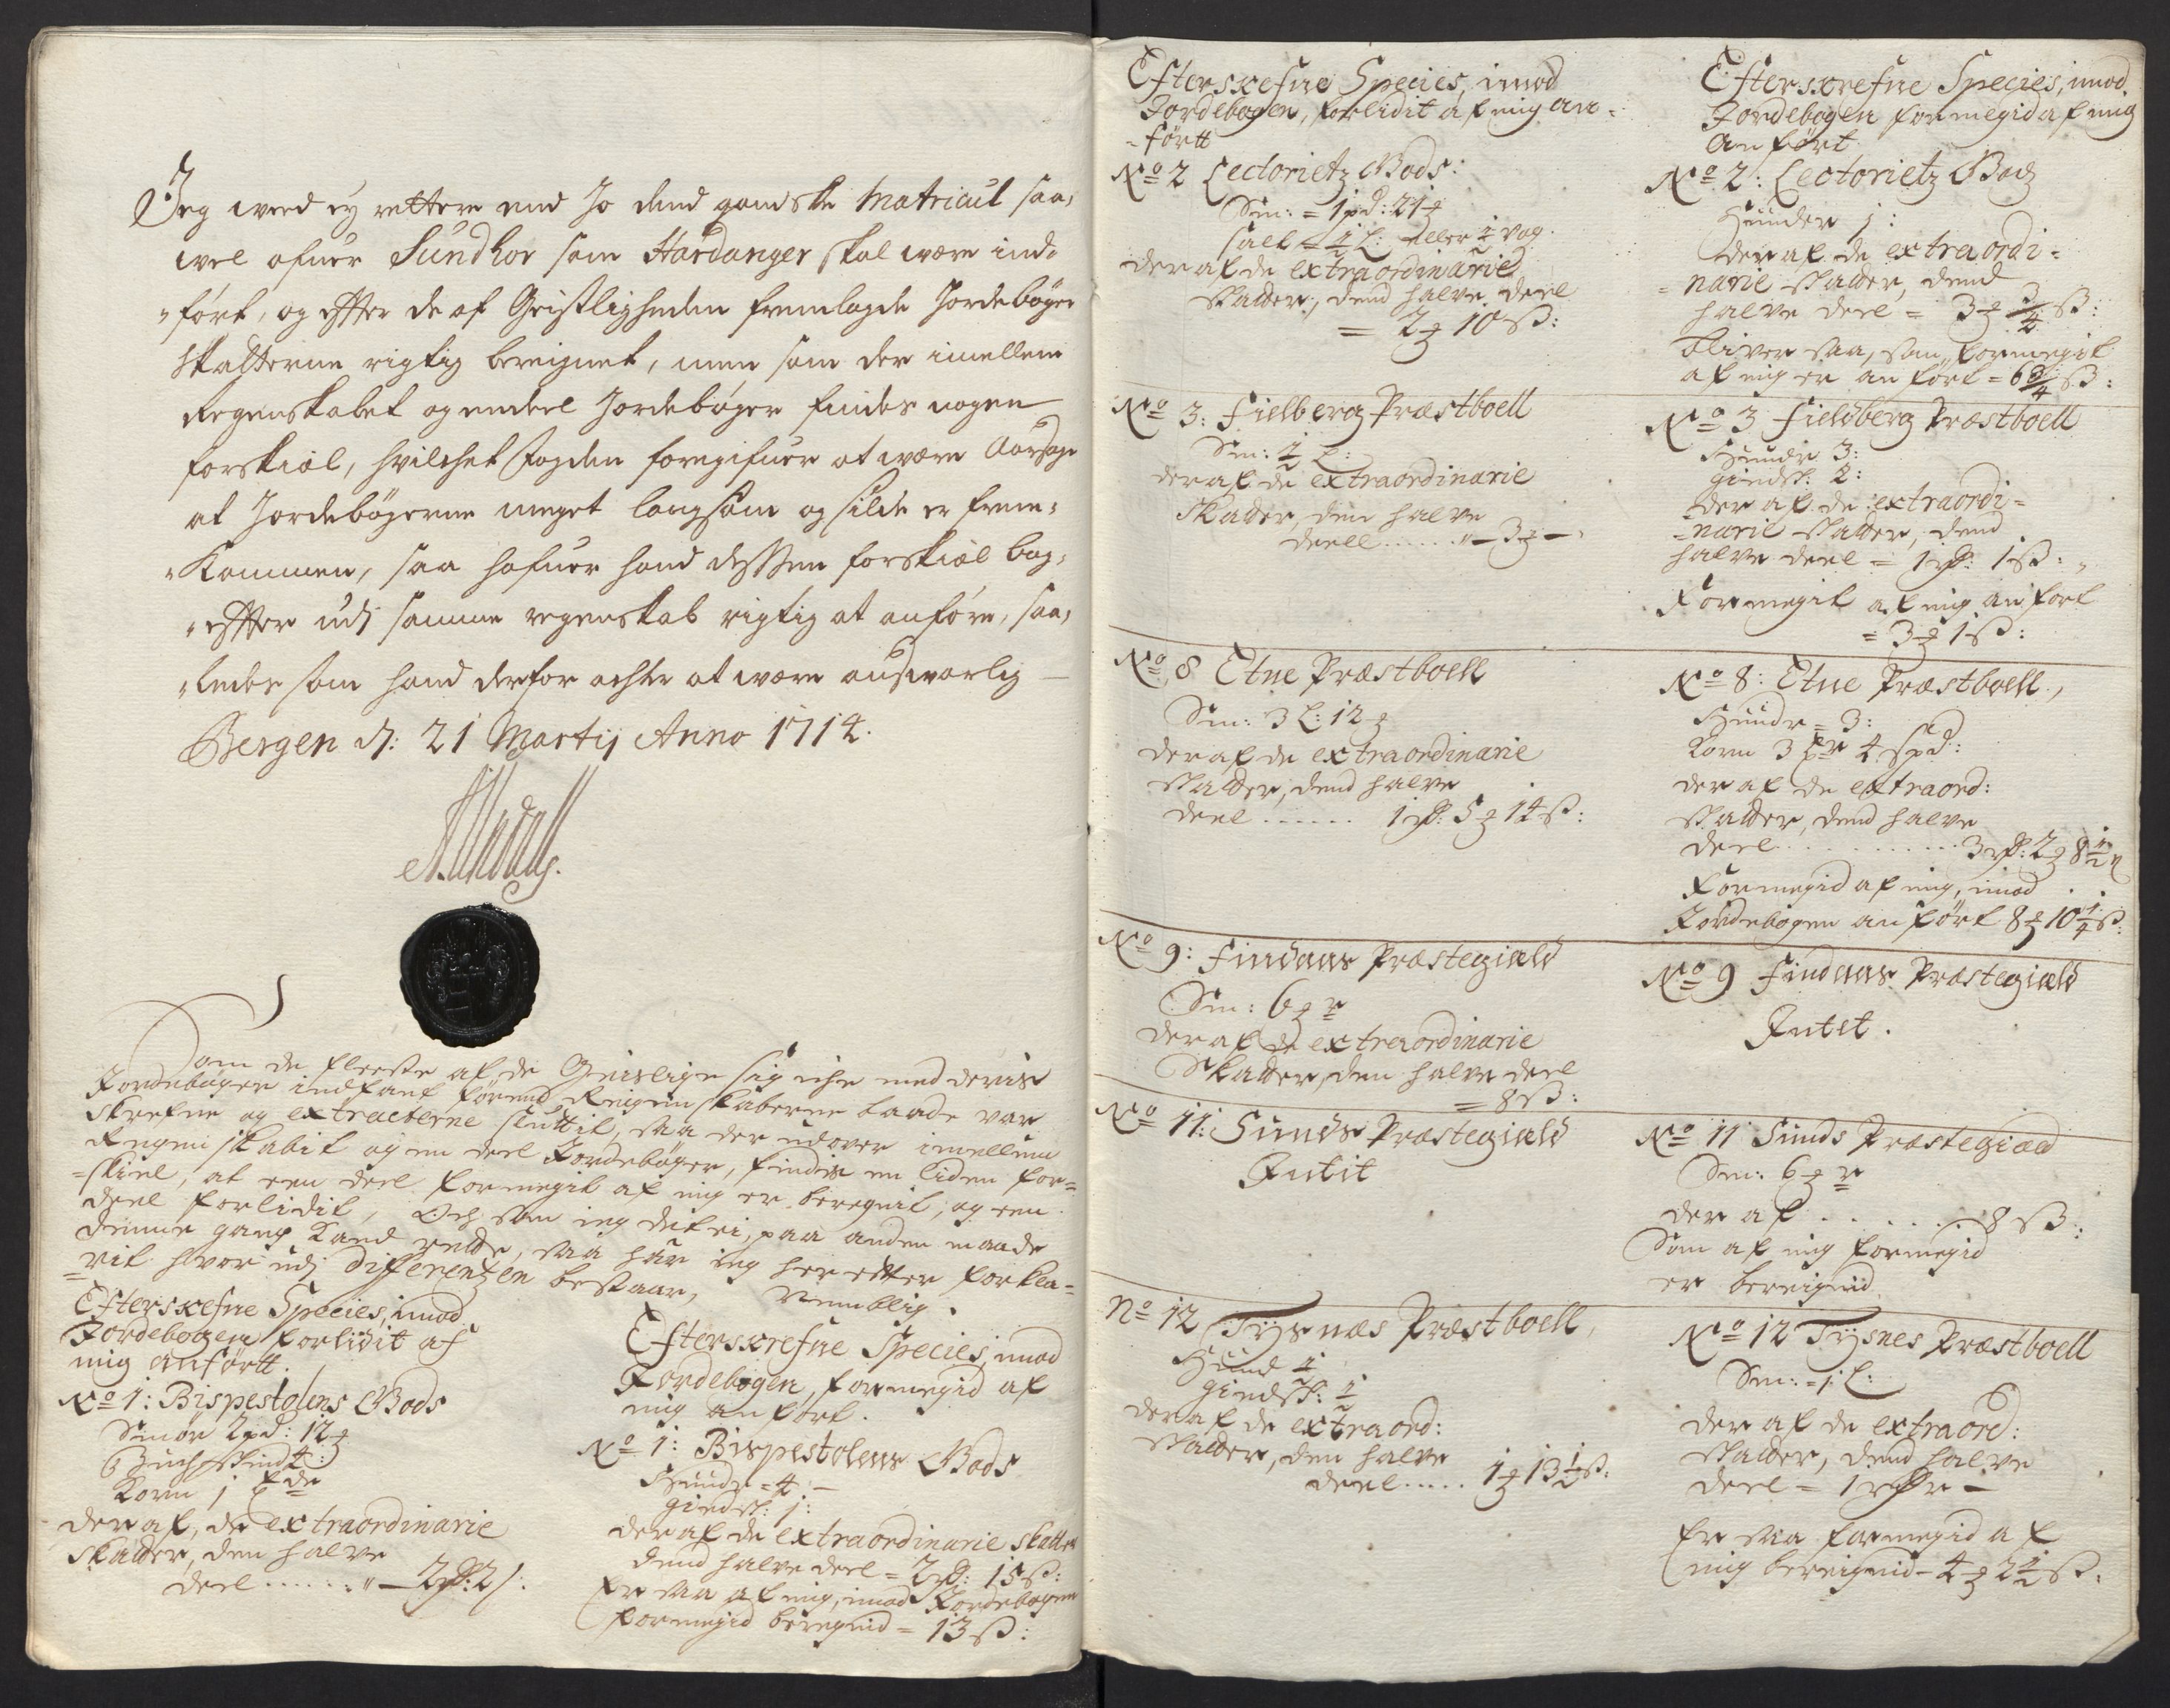 Jeg weed ej rettere end Jo dend gandske Matricul saa,
wel ofuer Sundhor som Hardanger skal være ind,
„ført, og effter de af Geistligheden fremlagde Jordebøger
Skatterne rigtig bereignet, men som der imellem
Regenskabet og endeel Jordebøger findes nogen
forskiæl, hvilchet fogden foregifuer at være Aarsage
at Jordebøgerne meget langsom og silde er frem,
„Kommen, saa hafuer hand dessen forskiæl bag,
„effter udj samme regenskab rigtig at anføre, saa,
„ledes som hand derfor achter at være answarlig —
Bergen d: 21 Martij Anno 1714.
Som de fleeste af de Geislige sig iche med deris
Jordebøger indfant førend Reigenskaberne baade var
skrefne og extracterne sluttit, saa der udover imellum
Regenskabit og en deel Jordebøger, findis en liden for=
=skiel, at een deel formegit af mig er beregnit, og een
deel forlidit, Och som ieg det ei, paa anden maade
denne gang Kand rette, saa har ieg her etter forkla=
=rit hvor udj differentzen bestaar, Nemblig.
Efterskefne Species, imod
Jordebogen forlidit af
mig anførtt.
No 1: Bispestolens Gods
Smör 2 pd: 12 ₰
Buchskind 4:
Korn 1 tde
der af, de extraordinarie
skatter, den halve
deel ...... „ — 2 rd: 2 s:
Efterskrefne Species, imod
Jordebogen, formegid af
mig anfört.
No 1: Bispestolens Gods
Huude = 4 —
giedsk: 1:
der af de extraordinarie skatter
dend halve deel = 2 rd: 15 ß:
Er saa af mig, imod Jordebogen
formegid beregnid = 13 ß:
Efterskefne Species, imod
Jordebogen, forlidit af mig an=
=förtt
No 2 Lectorietz Gods:
Sm: = 1 pd: 21 ₰
salt = ½ L: eller ½ vog.
der af de extraordinarie
skatter, dend halve deel
= 2 ₰ 10 ß:
No 3: Fielberg Præstboell
Sm: ½ L:
der af de extraordinarie
Skatter, den halve
deell ...... „ — 3 ₰ —
No 8 Etne Præstboell
Sm: 3 L: 12 ₰
der af de extraordinarie
skatter, dend halve
deel ...... 1 rd: 5 ₰ 14 ß:
No 9: Findaas Præstegield
Sm: 6 ₰ r
der af de extraordinarie
Skatter, den halve deel
= 8 ß:
No 11: Sunds Præstegield
Intit
No 12 Tysnæs Præstboell,
Huud ½
giedsk: ½
der af de extraord:
skatter, den halve
deel ..... 1 ₰ 13 ½ ß:
Efterskrefne Species, imod
Jordebogen formegid af mig
anfört
No 2: Lectorietz Godz
Huuder 1:
der af de extraordi=
=narie skatter, dend
halve deel = 3 ₰ 3/4 ß:
bliver saa, som formegit
af mig er anfört = 6 3/4 ß:
No 3 Fieldberg Præstboell
Huude 3:
giedsk: 2:
der af de extraordi=
=narie skatter, dend
halve deel = 1 rd: 1 ß: „
Formegit af mig anfört
= 3 ₰ 1 ß:
No 8: Etne Præstboell,
Huude = 3:
Korn 3 tdr 4 spd:
der af de extraord:
skatter, dend halve
deel ........... 3 rd: 2 ₰ 8 ½ ß
Formegid af mig, imod
Jordebogen anfört 8 ₰ 10 ¼ ß:
No 9 Findaas Præstegield
Intet.
No 11 Sunds Præstegiæd
Sm: 6 ₰ r
der af ....... 8 ß:
Som af mig formegid
er bereignid
No 12 Tysnes Præstboell
Sm: = 1: L:
der af de extraord:
skatter, dend halve
deel = 1 rdr —
Er saa formegid af
mig bereignid = 4 ₰ 2 ½ ß: